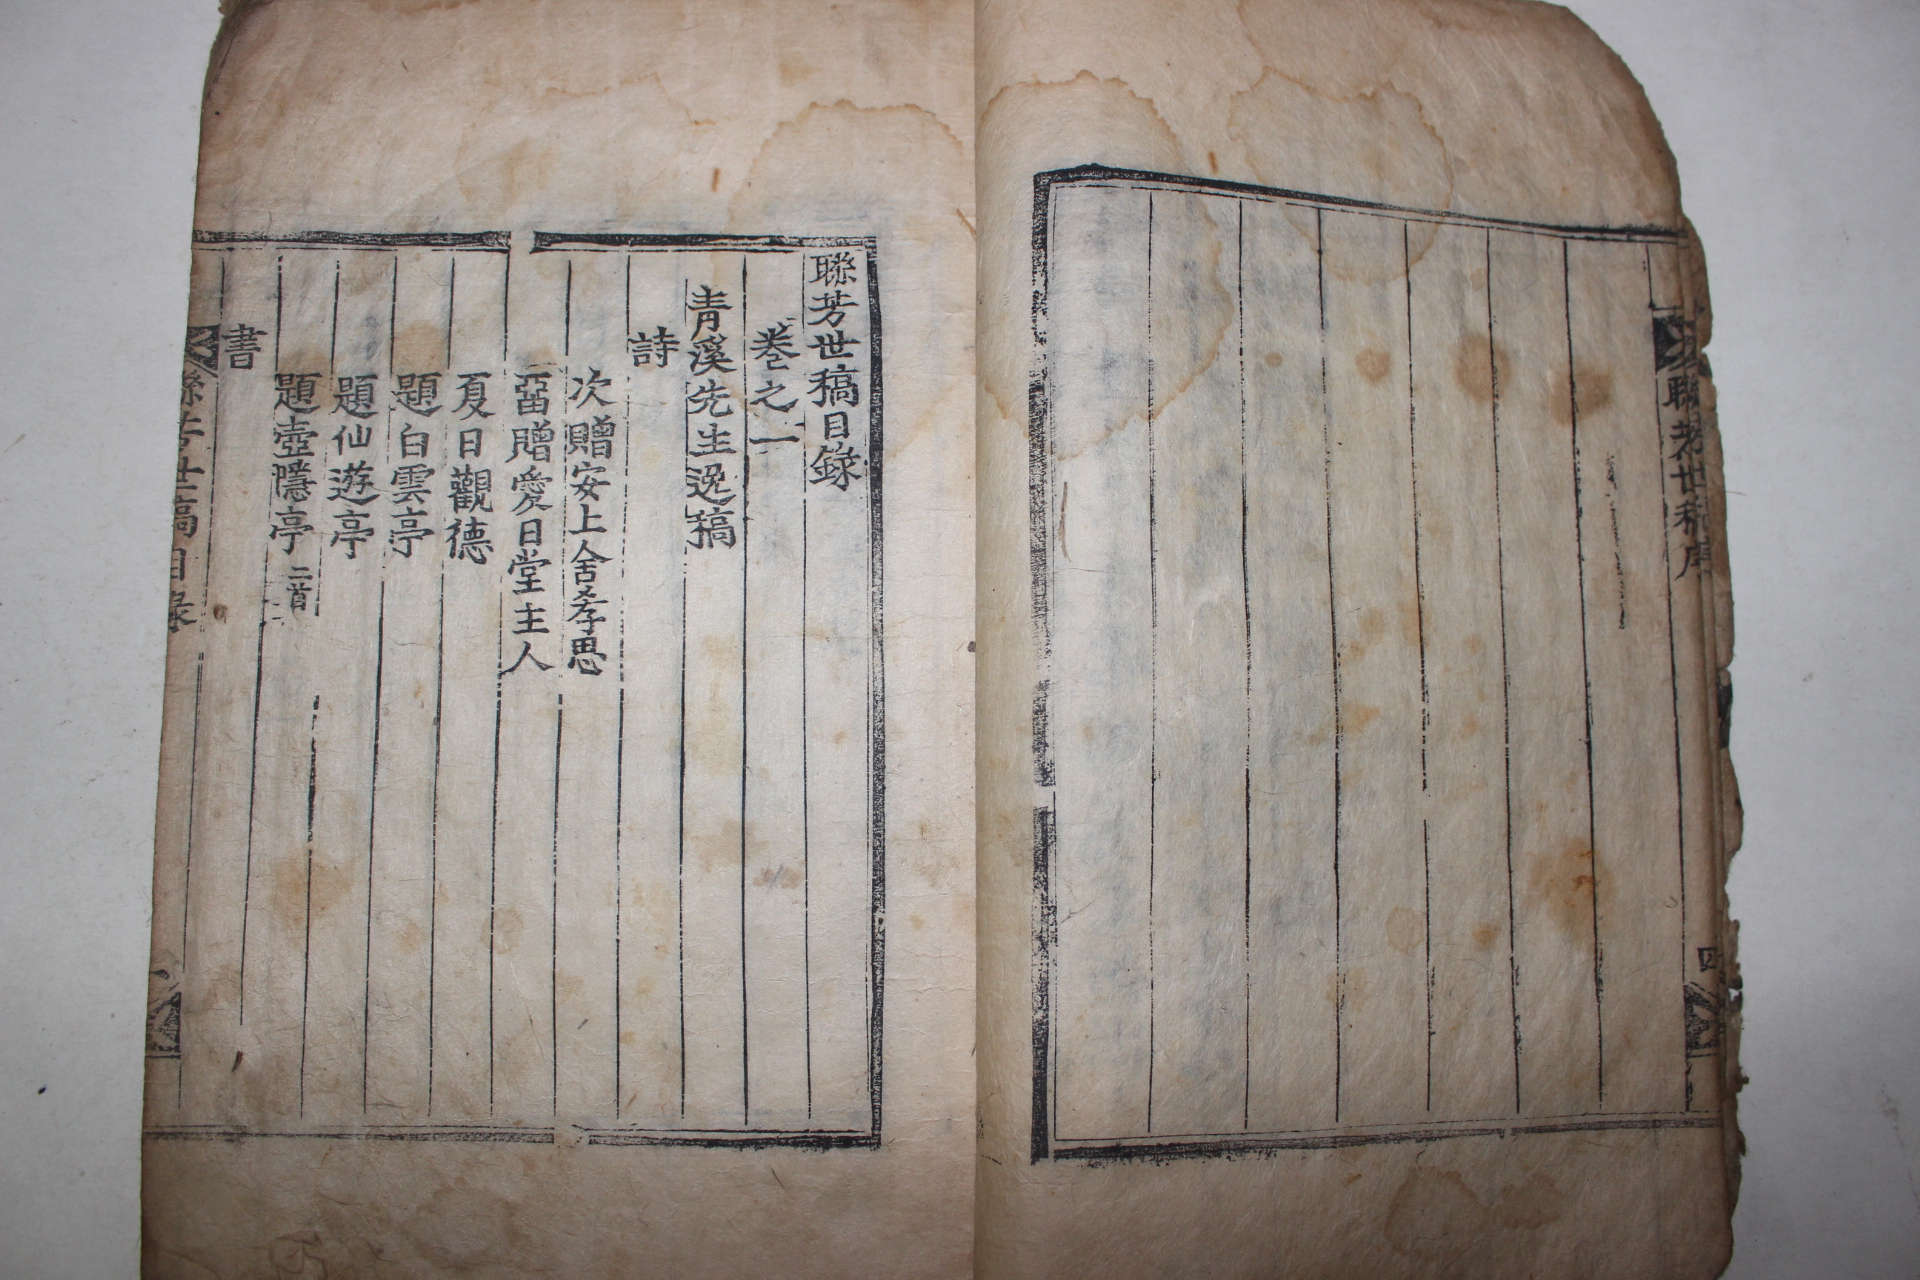 聯芳世稿序
四
聯芳世稿目錄
卷之一
青溪先生逸稿
詩
次贈安上舍孝思
畱贈愛日堂主人
夏日觀德
題白雲亭
題仙遊亭
題壺隱亭 二首
書
聯芳世稿目錄